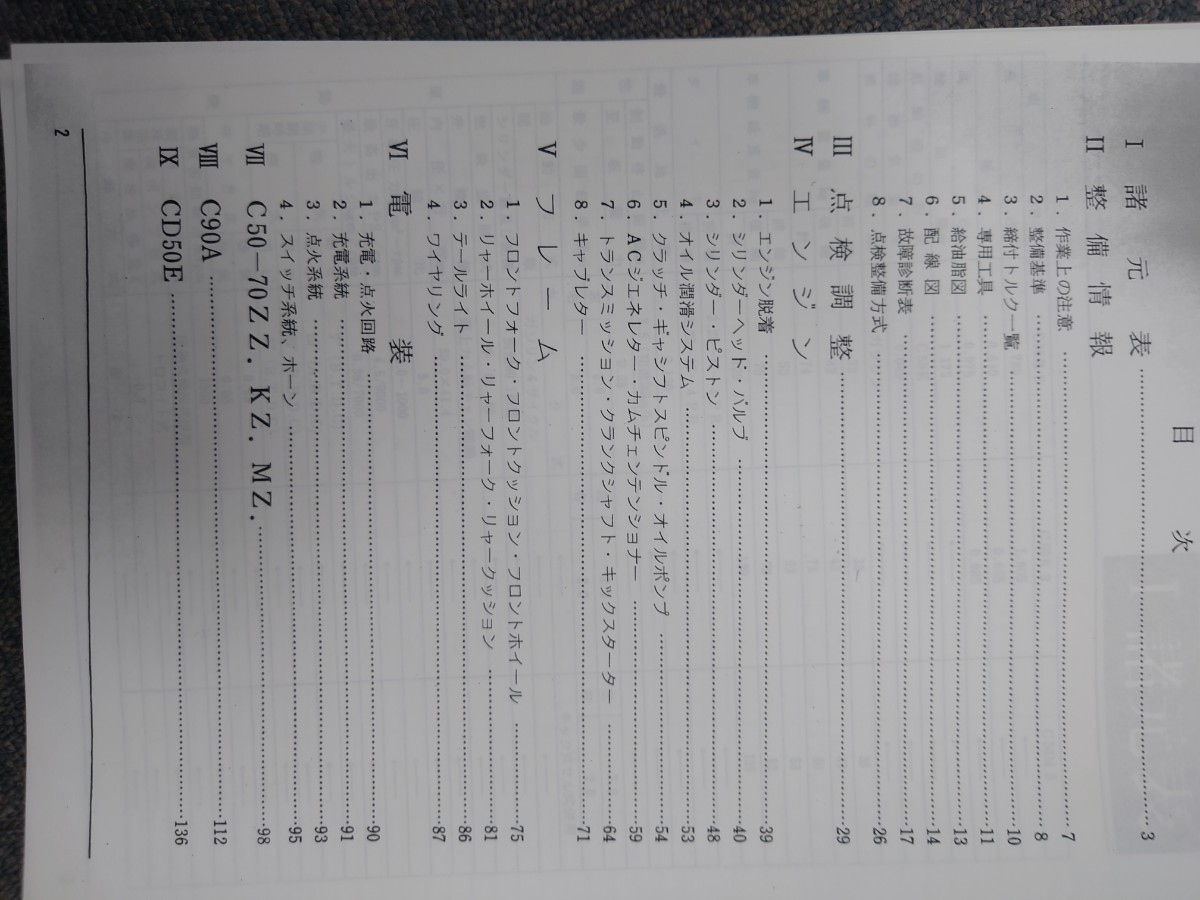 目　次
Ⅰ　諸　元　表……………3
Ⅱ　整　備　情　報
1．作業上の注意……………7
2．整備基準……………8
3．締付トルク一覧……………10
4．専用工具……………11
5．給油脂図……………13
6．配線図……………14
7．故障診断表……………17
8．点検整備方式……………26
Ⅲ　点　検　調　整……………29
Ⅳ　エ　ン　ジ　ン
1．エンジン脱着……………39
2．シリンダーヘッド・バルブ……………40
3．シリンダー・ピストン……………48
4．オイル潤滑システム……………53
5．クラッチ・ギヤシフトスピンドル・オイルポンプ……………54
6．ACジェネレター・カムチェンテンショナー……………59
7．トランスミッション・クランクシャフト・キックスターター……………64
8．キャブレター……………71
Ⅴ　フ　レ　ー　ム
1．フロントフォーク・フロントクッション・フロントホイール……………75
2．リヤーホイール・リヤーフォーク・リヤークッション……………81
3．テールライト……………86
4．ワイヤリング……………87
Ⅵ　電　装
1．充電・点火回路……………90
2．充電系統……………91
3．点火系統……………93
4．スイッチ系統、ホーン……………95
Ⅶ　C50—70ZZ．KZ．MZ．……………98
Ⅷ　C90A……………112
Ⅸ　CD50E……………136
2